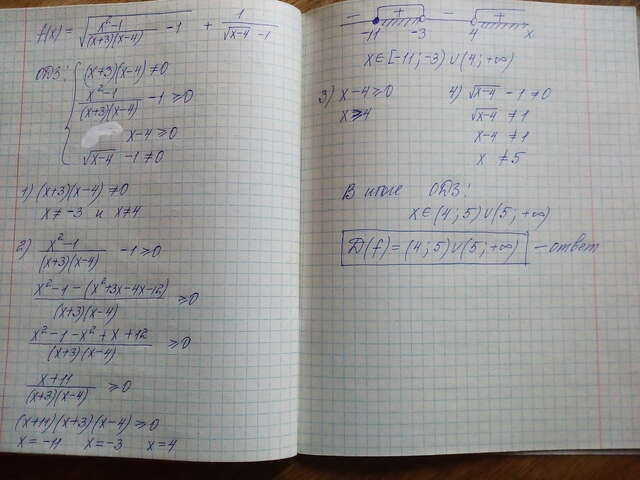 f(x) = √((x²-1)/((x+3)(x-4)) - 1) + 1/(√(x-4) - 1)
ОДЗ: { (x+3)(x-4) ≠ 0
(x²-1)/((x+3)(x-4)) - 1 ≥ 0
x-4 ≥ 0
√(x-4) - 1 ≠ 0
1) (x+3)(x-4) ≠ 0
x ≠ -3 и x ≠ 4
2) (x²-1)/((x+3)(x-4)) - 1 ≥ 0
(x²-1-(x²+3x-4x-12))/((x+3)(x-4)) ≥ 0
(x²-1-x²+x+12)/((x+3)(x-4)) ≥ 0
(x+11)/((x+3)(x-4)) ≥ 0
(x+11)(x+3)(x-4) ≥ 0
x = -11 x = -3 x = 4
- + - +
-11 -3 4 x
x ∈ [-11; -3) ∪ (4; +∞)
3) x-4 ≥ 0
x ≥ 4
4) √(x-4) - 1 ≠ 0
√(x-4) ≠ 1
x-4 ≠ 1
x ≠ 5
В итоге ОДЗ:
x ∈ (4; 5) ∪ (5; +∞)
D(f) = (4; 5) ∪ (5; +∞) - ответ